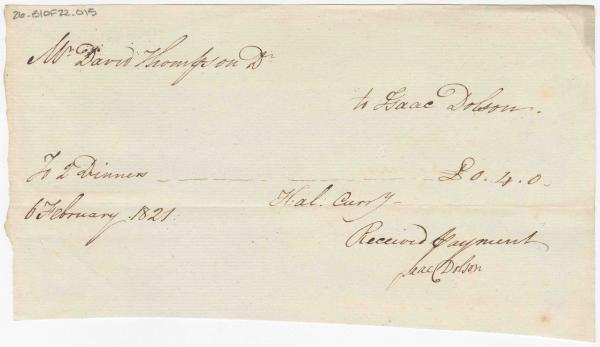 26-B10F22-015
Mr. David Thompson Dr.
to Isaac Dolson.
To 2 Dinners — — — — £0.4.0
6 February 1821 Hal. Curry
Received payment
Isaac Dolson